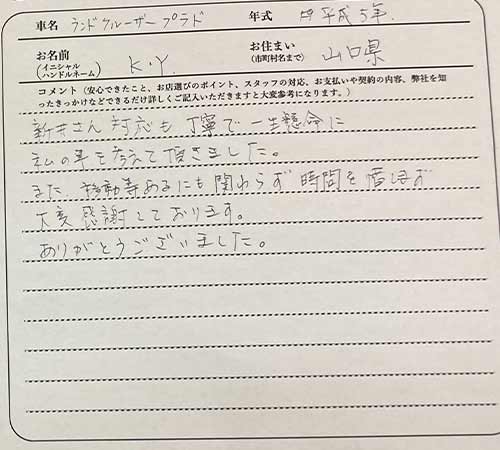 車名 ランドクルーザー プラド 年式 平成5年.
お名前 (イニシャル ハンドルネーム) K・Y. お住まい (市町村名まで) 山口県
コメント（安心できたこと、お店選びのポイント、スタッフの対応、お支払いや契約の内容、弊社を知
ったきっかけなどできるだけ詳しくご記入いただきますと大変参考になります。）
新井さん 対応も 丁寧で 一生懸命に
私の事を考えて頂きました。
また 移動等あるにも関わらず 時間を惜しまず
大変 感謝しております。
ありがとうございました。